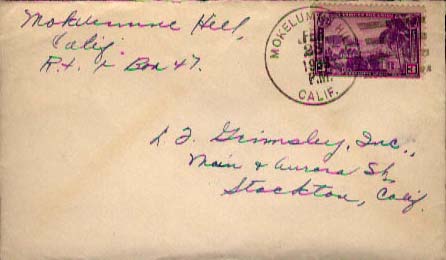 Mokelumne Hill,
Calif.
Rt. 1 Box 47.
MOKELUMNE HILL
FEB
25
P.M.
CALIF.
3
L. F. Grimsley, Inc.,
Main & Aurora Sts.
Stockton, Calif.